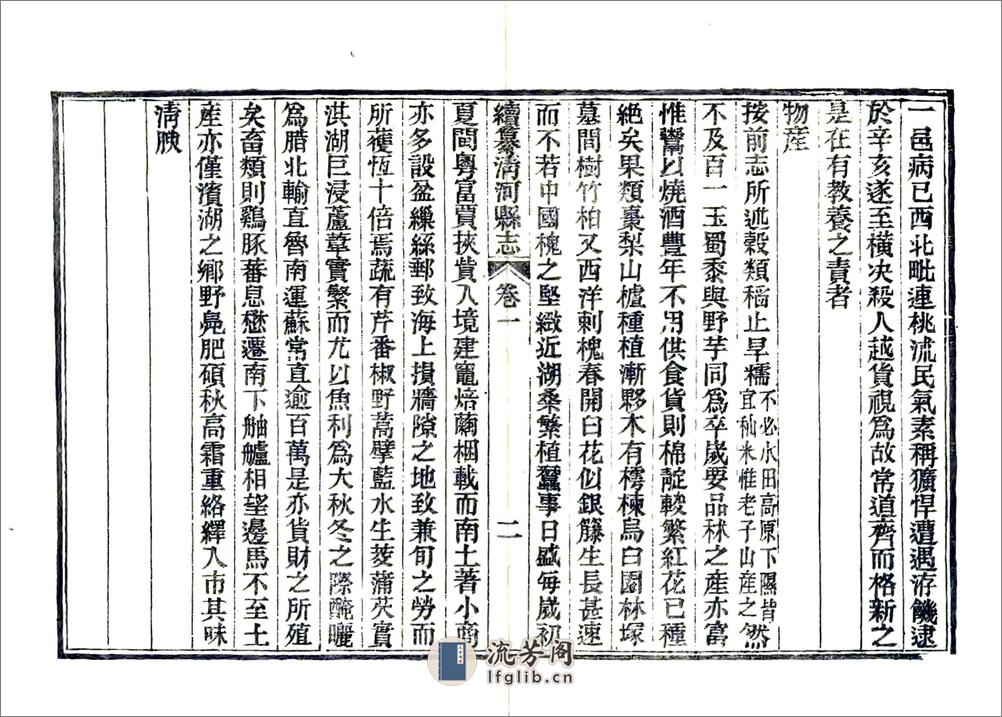 一邑病已西北毗連桃流民氣素稱獷悍遭遇洊饑逮
於辛亥遂至橫決殺人越貨視爲故常道齊而格新之
是在有教養之責者
物産
按前志所述穀類稻止旱糯不必水田高原下隰皆宜秈米惟老子山産之然
不及百一玉蜀黍與野芋同爲卒歲要品秫之産亦富
惟鬻以燒酒豐年不另供食貨則棉靛較繁紅花已種
絶矣果類棗梨山樝種植漸夥木有樗楝烏臼園林塚
墓間樹竹柏又西洋刺槐春開白花似銀籐生長甚速
而不若中國槐之堅緻近湖桑繁植蠶事日盛每歲初
續纂清河縣志 卷一 二
夏閩粤富賈挾貲入境建竈焙繭梱載而南土著小商
亦多設盆繅絲郵致海上損牆隙之地致兼旬之勞而
所獲恆十倍焉蔬有芹番椒野蒿擘藍水生菱蒲芡實
洪湖巨浸蘆葦實繁而尤以魚利爲大秋冬之際醃曬
爲腊北輸直魯南運蘇常直逾百萬是亦貨財之所殖
矣畜類則鷄豚蕃息懋遷南下舳艫相望邊馬不至土
産亦僅濱湖之鄉野鳧肥碩秋高霜重絡繹入市其味
清腴
流芳阁
lfglib.cn